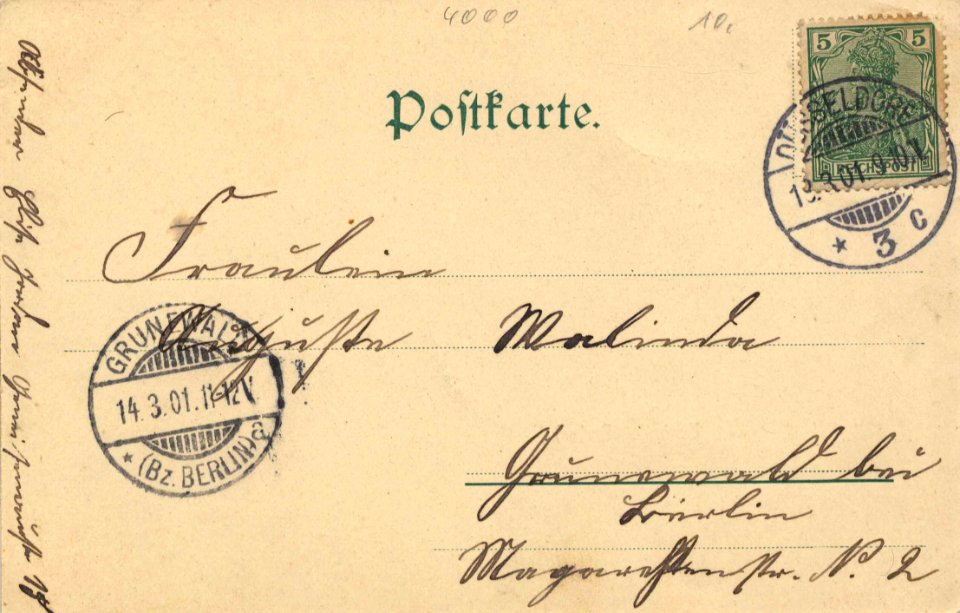 4000
10.
5 5
REICHSPOST
Postkarte.
DÜSSELDORF
13.3.01. 9-10 V.
* 3 c
Fräulein
Auguste Malinda
GRUNEWALD
14.3.01.11-12V.
* (BZ. BERLIN) a
Grunewald bei
Berlin
Magarethenstr. N. 2
Absender